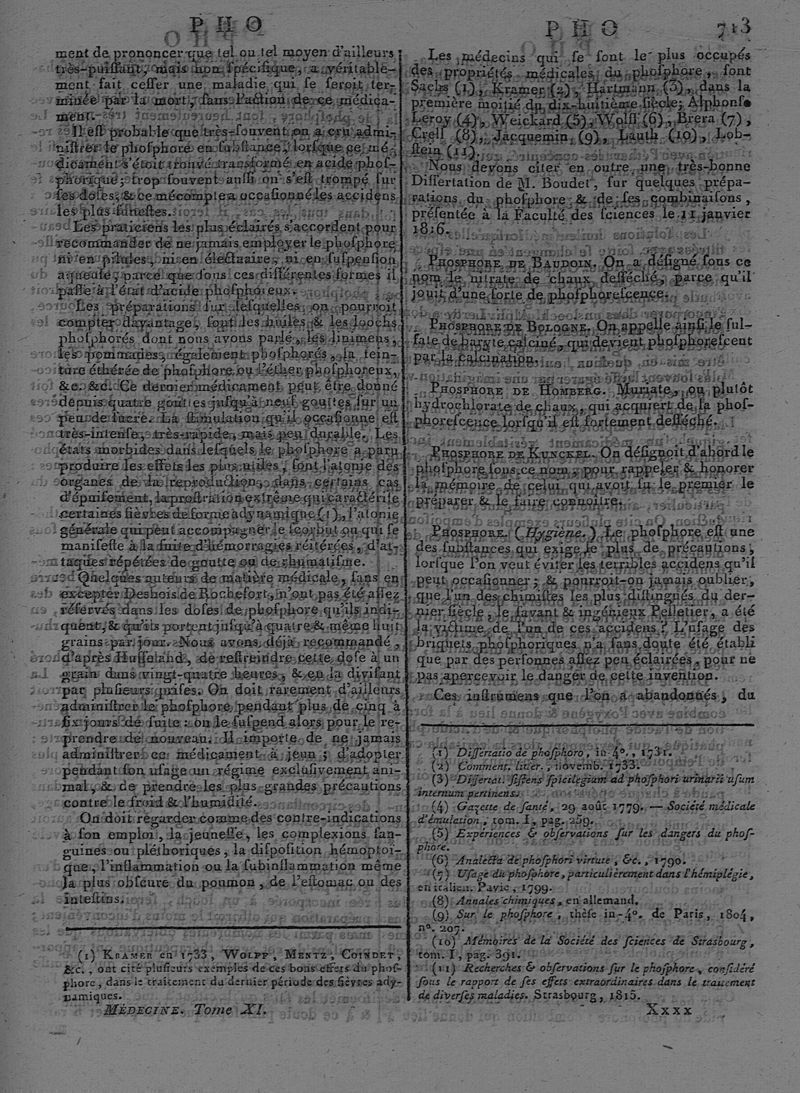 PHO
PHO 713
ment de prononcer que tel ou tel moyen d'ailleurs
très-puiſſant, mais non ſpécifique, a véritable-
ment fait ceſſer une maladie qui ſe ſeroit ter-
minée par la mort, ſans l'action de ce médica-
ment.
Il eſt probable que très-ſouvent on a cru admi-
niſtrer le phoſphore en ſubſtance, lorſque ce mé-
dicament s'étoit trouvé transformé en acide phoſ-
phorique; trop ſouvent auſſi on s'eſt trompé ſur
ſes doſes, & ce mécompte a occaſionné les accidens
les plus funeſtes.
Les praticiens les plus éclairés s'accordent pour
recommander de ne jamais employer le phoſphore
ni en pilules, ni en électuaire, ni en ſuſpenſion
aqueuſe, parce que ſous ces différentes formes il
paſſe à l'état d'acide phoſphoreux.
Les préparations ſur leſquelles on pourroit
compter davantage, ſont les huiles & les loochs
phoſphorés dont nous avons parlé, les linimens,
les pommades, également phoſphorés, la tein-
ture éthérée de phoſphore ou l'éther phoſphoreux,
&c. &c. Ce dernier médicament peut être donné
depuis quatre gouttes juſqu'à neuf gouttes ſur un
peu de ſucre. La ſtimulation qu'il occaſionne eſt
très-intenſe, très-rapide, mais peu durable. Les
états morbides dans leſquels le phoſphore a paru
produire les effets les plus utiles, ſont l'atonie des
organes de la reproduction, dans certains cas
d'épuiſement, la proſtration extrême qui caractériſe
certaines fièvres de forme adynamique (1), l'atonie
générale qui peut accompagner le ſcorbut ou qui ſe
manifeſte à la ſuite d'hémorragies réitérées, d'at-
taques répétées de goutte ou de rhumatiſme.
Quelques auteurs de matière médicale, ſans en
excepter Desbois de Rochefort, n'ont pas été aſſez
réſervés dans les doſes de phoſphore qu'ils indi-
quent, & qu'ils portent juſqu'à quatre & même huit
grains par jour. Nous avons déjà recommandé,
d'après Huffeland, de reſtreindre cette doſe à un
grain dans vingt-quatre heures, & en la diviſant
par pluſieurs priſes. On doit rarement d'ailleurs
adminiſtrer le phoſphore pendant plus de cinq à
ſix jours de ſuite: on le ſuſpend alors pour le re-
prendre de nouveau. Il importe de ne jamais
adminiſtrer ce médicament à jeun; d'adopter
pendant ſon uſage un régime excluſivement ani-
mal, & de prendre les plus grandes précautions
contre le froid & l'humidité.
On doit regarder comme des contre-indications
à ſon emploi, la jeuneſſe, les complexions ſan-
guines ou pléthoriques, la diſpoſition hémoptoï-
que, l'inflammation ou la ſubinflammation même
la plus obſcure du poumon, de l'eſtomac ou des
inteſtins.
(1) KRAMER en 1733, WOLFF, MENTZ, COINDET,
&c., ont cité pluſieurs exemples de ces bons effets du phoſ-
phore, dans le traitement du dernier période des fièvres ady-
namiques.
MÉDECINE. Tome XI.
Les médecins qui ſe ſont le plus occupés
des propriétés médicales du phoſphore, ſont
Sachs (1), Kramer (2), Hartmann (3), dans la
première moitié du dix-huitième ſiècle; Alphonſe
Leroy (4), Weickard (5), Wolff (6), Brera (7),
Crell (8), Jacquemin (9), Lauth (10), Lob-
ſtein (11).
Nous devons citer en outre une très-bonne
Diſſertation de M. Boudet, ſur quelques prépa-
rations du phoſphore & de ſes combinaiſons,
préſentée à la Faculté des ſciences le 11 janvier
1816.
PHOSPHORE DE BAUDOIN. On a déſigné ſous ce
nom le nitrate de chaux deſſéché, parce qu'il
jouit d'une ſorte de phoſphoreſcence.
PHOSPHORE DE BOLOGNE. On appelle ainſi le ſul-
fate de baryte calciné, qui devient phoſphoreſcent
par la calcination.
PHOSPHORE DE HOMBERG. Muriate, ou plutôt
hydrochlorate de chaux, qui acquiert de la phoſ-
phoreſcence lorſqu'il eſt fortement deſſéché.
PHOSPHORE DE KUNCKEL. On déſignoit d'abord le
phoſphore ſous ce nom, pour rappeler & honorer
la mémoire de celui qui avoit ſu le premier le
préparer & le faire connoître.
PHOSPHORE. (Hygiène.) Le phoſphore eſt une
des ſubſtances qui exige le plus de précautions,
lorſque l'on veut éviter les terribles accidens qu'il
peut occaſionner; & pourroit-on jamais oublier,
que l'un des chimiſtes les plus diſtingués du der-
nier ſiècle, le ſavant & ingénieux Pelletier, a été
la victime de l'un de ces accidens! L'uſage des
briquets phoſphoriques n'a ſans doute été établi
que par des perſonnes aſſez peu éclairées, pour ne
pas apercevoir le danger de cette invention.
Ces inſtrumens que l'on a abandonnés, du
(1) Diſſertatio de phoſphoro, in-4°., 1731.
(2) Comment. litter., novemb. 1733.
(3) Diſſertat. ſiſtens ſpicilegium ad phoſphori urinarii uſum
internum pertinens.
(4) Gazette de ſanté, 29 août 1779. — Société médicale
d'émulation, tom. I, pag. 259.
(5) Expériences & obſervations ſur les dangers du phoſ-
phore.
(6) Analecta de phoſphori virtute, &c., 1790.
(7) Uſage du phoſphore, particulièrement dans l'hémiplégie,
en italien. Pavie, 1799.
(8) Annales chimiques, en allemand.
(9) Sur le phoſphore, thèſe in-4°. de Paris, 1804,
n°. 207.
(10) Mémoires de la Société des ſciences de Strasbourg,
tom. I, pag. 391.
(11) Recherches & obſervations ſur le phoſphore, conſidéré
ſous le rapport de ſes effets extraordinaires dans le traitement
de diverſes maladies. Strasbourg, 1815.
Xxxx